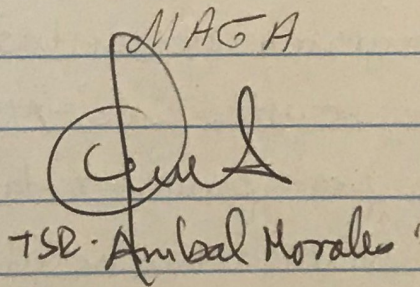 MAGA
TSR. Anibal Morales